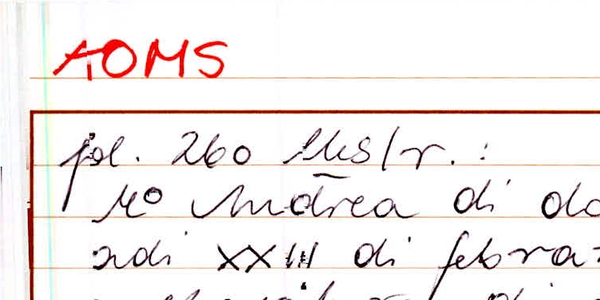 AOMS
fol. 260 MS/r. :
Mº Andrea di do
adi XXIII di febra